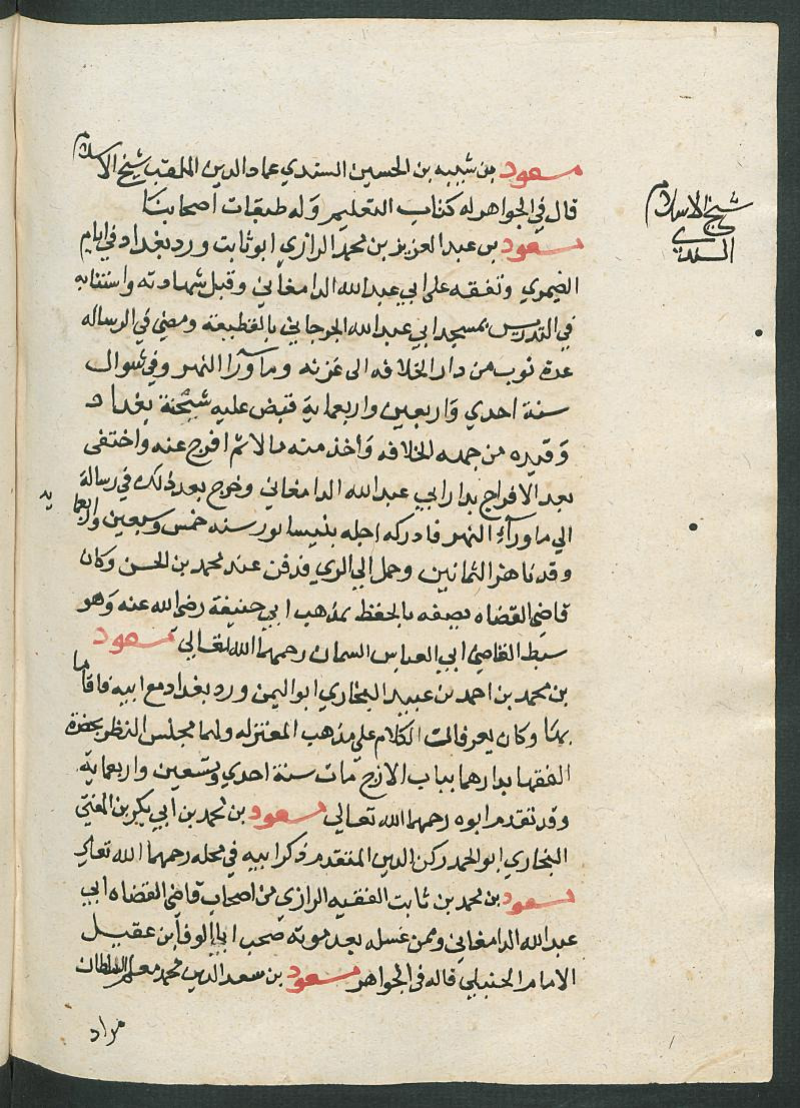 مسعود بن شيبه بن الحسين السندي عماد الدين الملقب شيخ الاسلام
قال في الجواهر له كتاب التعليم وله طبقات اصحابنا
مسعود بن عبد العزيز بن محمد الرازي ابو ثابت ورد بغداد في ايام
الصيمري وتفقه على ابي عبد الله الدامغاني وقبل شهادته واستنابه
في التدريس بمسجد ابي عبد الله الجرجاني بالقطيعة ومضى في الرساله
عدة نوب من دار الخلافه الى غزنه وما ورآ النهر وفي شوال
سنة احدي واربعين واربعماية قبض عليه شحنة بغداد
وقيده من جهه الخلافه واخذ منه مالا ثم افرج عنه واختفى
بعد الافراج بدار ابي عبد الله الدامغاني وخرج بعد ذلك في رسالة
الي ما ورآء النهر فادركه اجله بنيسابور سنه خمس وسبعين واربعماية
وقد ناهز الثمانين وحمل الي الري فدفن عند محمد بن الحسن وكان
قاضي القضاه يصفه بالحفظ بمذهب ابي حنيفة رضي الله عنه وهو
سبط القاضي ابي العباس السمان رحمهما الله تعالي مسعود
بن محمد بن احمد بن عبيد البخاري ابو اليمن ورد بغداد مع ابيه فاقاما
بها وكان يعرفان الكلام على مذهب المعتزله ولهما مجلس النظر بحضرة
الفقها بدارهما بباب الازج مات سنة احدي وتسعين واربعماية
وقد تقدم ابوه رحمهما الله تعالي مسعود بن محمد بن ابي بكر بن المفتي
البخاري ابو الحمد ركن الدين المتقدم ذكر ابيه في محله رحمهما الله تعالي
مسعود بن محمد بن ثابت الفقيه الرازي من اصحاب قاضي القضاه ابي
عبد الله الدامغاني وممن غسله بعد موته صحب ابا الوفا بن عقيل
الامام الحنبلي قاله في الجواهر مسعود بن سعد الدين محمد معلم السلطان
مراد
شيخ الاسلام
السندي